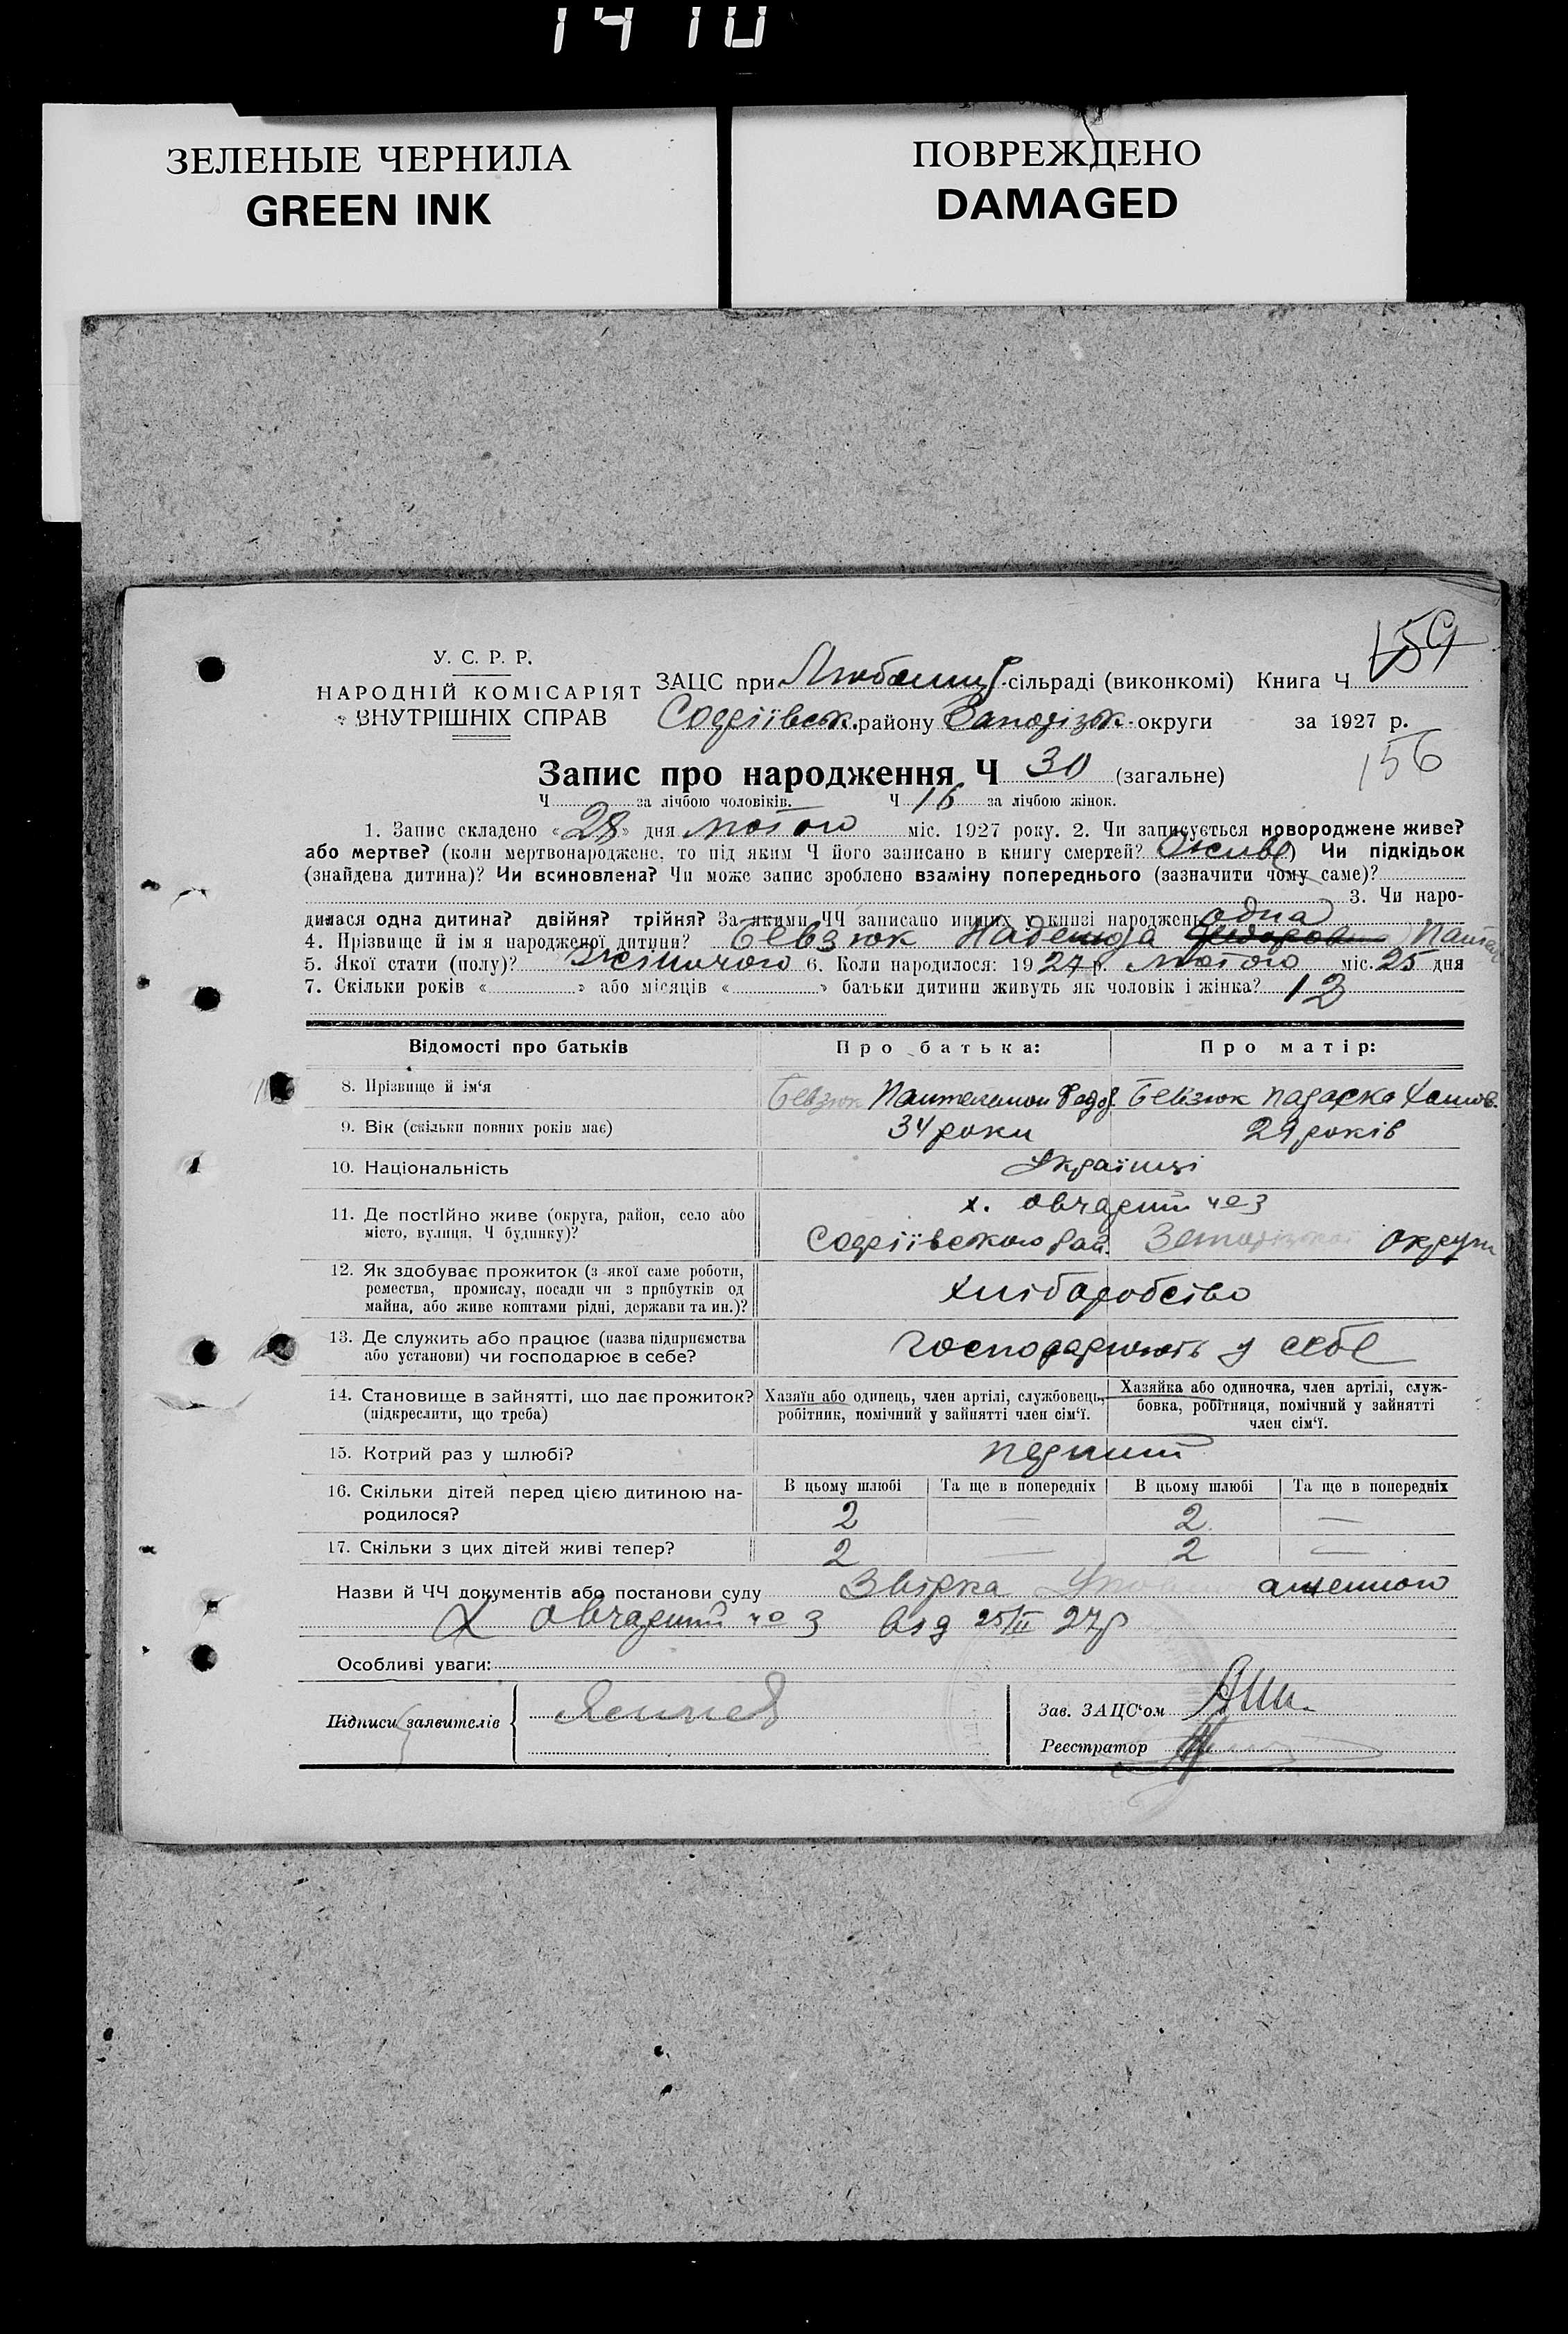 1410
ЗЕЛЕНЫЕ ЧЕРНИЛА
GREEN INK
ПОВРЕЖДЕНО
DAMAGED
159
У. С. Р. Р.
НАРОДНІЙ КОМІСАРІЯТ
ВНУТРІШНІХ СПРАВ
ЗАЦС при Любомир сільраді (виконкомі) Книга Ч
Софіївськ. району Запорізьк. округи за 1927 р.
156
Запис про народження Ч 30 (загальне)
Ч за лічбою чоловіків. Ч 16 за лічбою жінок.
1. Запис складено «28» дня лютого міс. 1927 року. 2. Чи записується новороджене живе?
або мертве? (коли мертвонароджене, то під яким Ч його записано в книгу смертей? живе) Чи підкідьок
(знайдена дитина)? Чи всиновлена? Чи може запис зроблено взаміну попереднього (зазначити чому саме)?
3. Чи наро-
дилася одна дитина? двійня? трійня? За якими ЧЧ записано инших у книзі народжень одна
4. Прізвище й ім'я народженої дитини? Бевзюк Надежда
5. Якої стати (полу)? жіночого 6. Коли народилося: 1927 р. лютого міс. 25 дня
7. Скільки років « » або місяців « » батьки дитини живуть як чоловік і жінка? 12
Відомості про батьків Про батька: Про матір:
8. Прізвище й ім'я Бевзюк Пантелемон Федор. Бевзюк Параска
9. Вік (скільки повних років має) 34 роки 29 років
10. Національність Українці
11. Де постійно живе (округа, район, село або х. овчарний чо 3
місто, вулиця, Ч будинку)? Софіївського рай. Запорізької округи
12. Як здобуває прожиток (з якої саме роботи,
ремества, промислу, посади чи з прибутків од хліборобство
майна, або живе коштами рідні, держави та ин.)?
13. Де служить або працює (назва підприємства господарюють у себе
або установи) чи господарює в себе?
14. Становище в зайнятті, що дає прожиток? Хазяїн або одинець, член артілі, службовець, Хазяйка або одиночка, член артілі, служ-
(підкреслити, що треба) робітник, помічний у зайнятті член сім'ї. бовка, робітниця, помічний у зайнятті
член сім'ї.
15. Котрий раз у шлюбі? перший
16. Скільки дітей перед цією дитиною на- В цьому шлюбі Та ще в попередніх В цьому шлюбі Та ще в попередніх
родилося? 2 — 2 —
17. Скільки з цих дітей живі тепер? 2 — 2 —
Назви й ЧЧ документів або постанови суду Звірка
х овчарний чо 3 від 25/II 27р
Особливі уваги:
Підписи заявителів
Зав. ЗАЦС'ом
Реєстратор